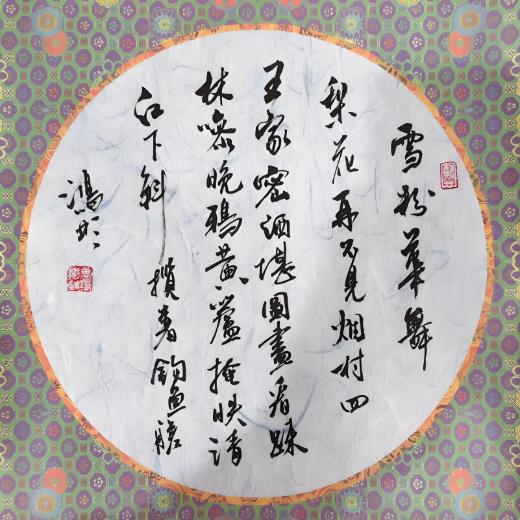 雪粉華舞
梨花再不見烟村四
五家密洒堪圖畫看疎
林噪晚鴉黄蘆掩映清
江下斜揽着釣魚艖
鴻